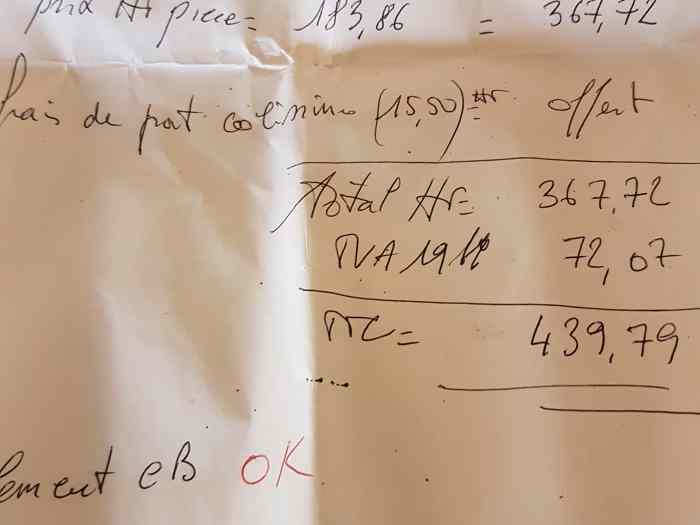 prix Ht piece = 183,86 = 367,72
frais de port colissimo (15,50) Ht = offert
Total Ht = 367,72
TVA 19,6 72,07
TTC = 439,79
lement CB OK